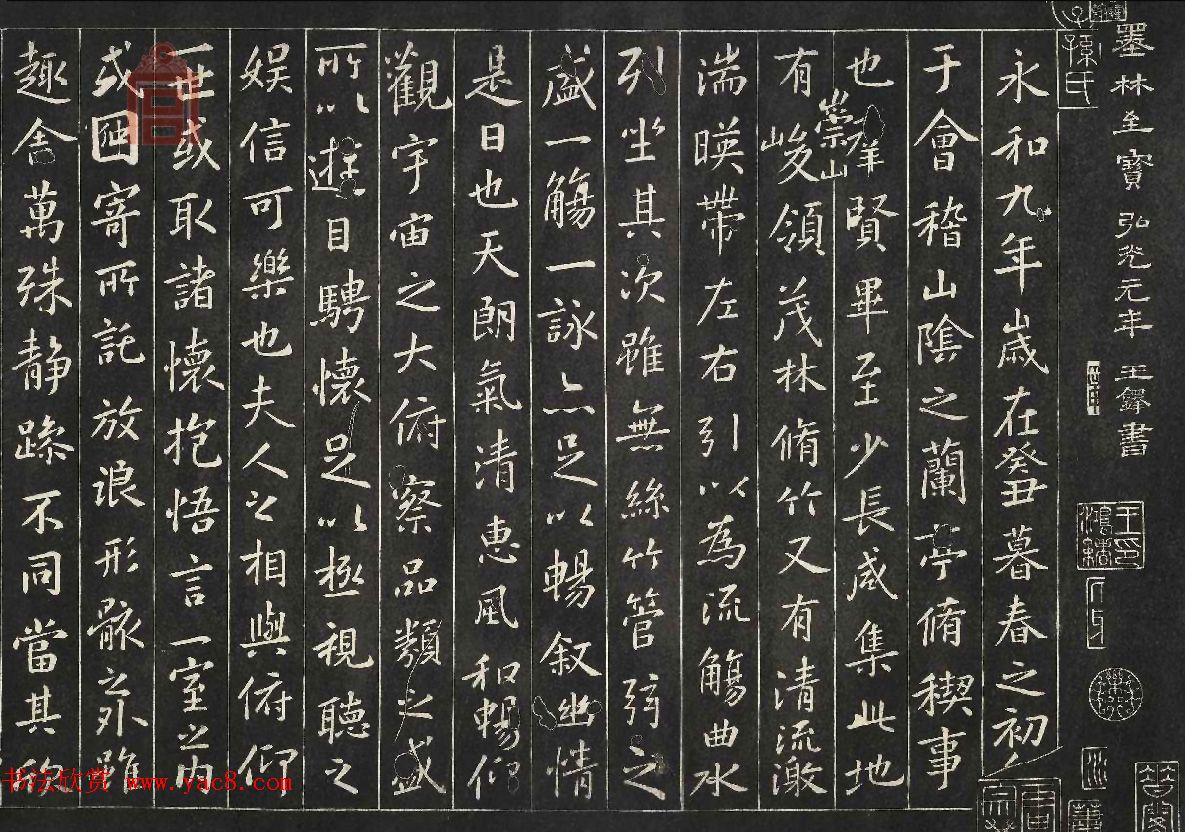 墨林至寶 弘光元年 王鐸書
孫氏
永和九年歲在癸丑暮春之初
于會稽山陰之蘭亭脩稧事
也羣賢畢至少長咸集此地
有崇山峻領茂林脩竹又有清流激
湍暎帶左右引以為流觴曲水
列坐其次雖無絲竹管弦之
盛一觴一詠亦足以暢敘幽情
是日也天朗氣清惠風和暢仰
觀宇宙之大俯察品類之盛
所以遊目騁懷足以極視聽之
娛信可樂也夫人之相與俯仰
一世或取諸懷抱悟言一室之內
或因寄所託放浪形骸之外雖
趣舍萬殊靜躁不同當其欣
书法欣赏 www.yac8.com